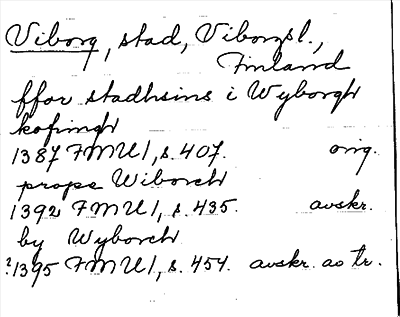 Viborg, stad, Viborgsl.,
Finland
ffor stadhsins i Wyborgh
kofingh
1387 FMU 1, s. 407. orig.
prope Wiborch
1392 FMU 1, s. 435. avskr.
by Wyborch
?1395 FMU 1, s. 454. avskr. ao tr.